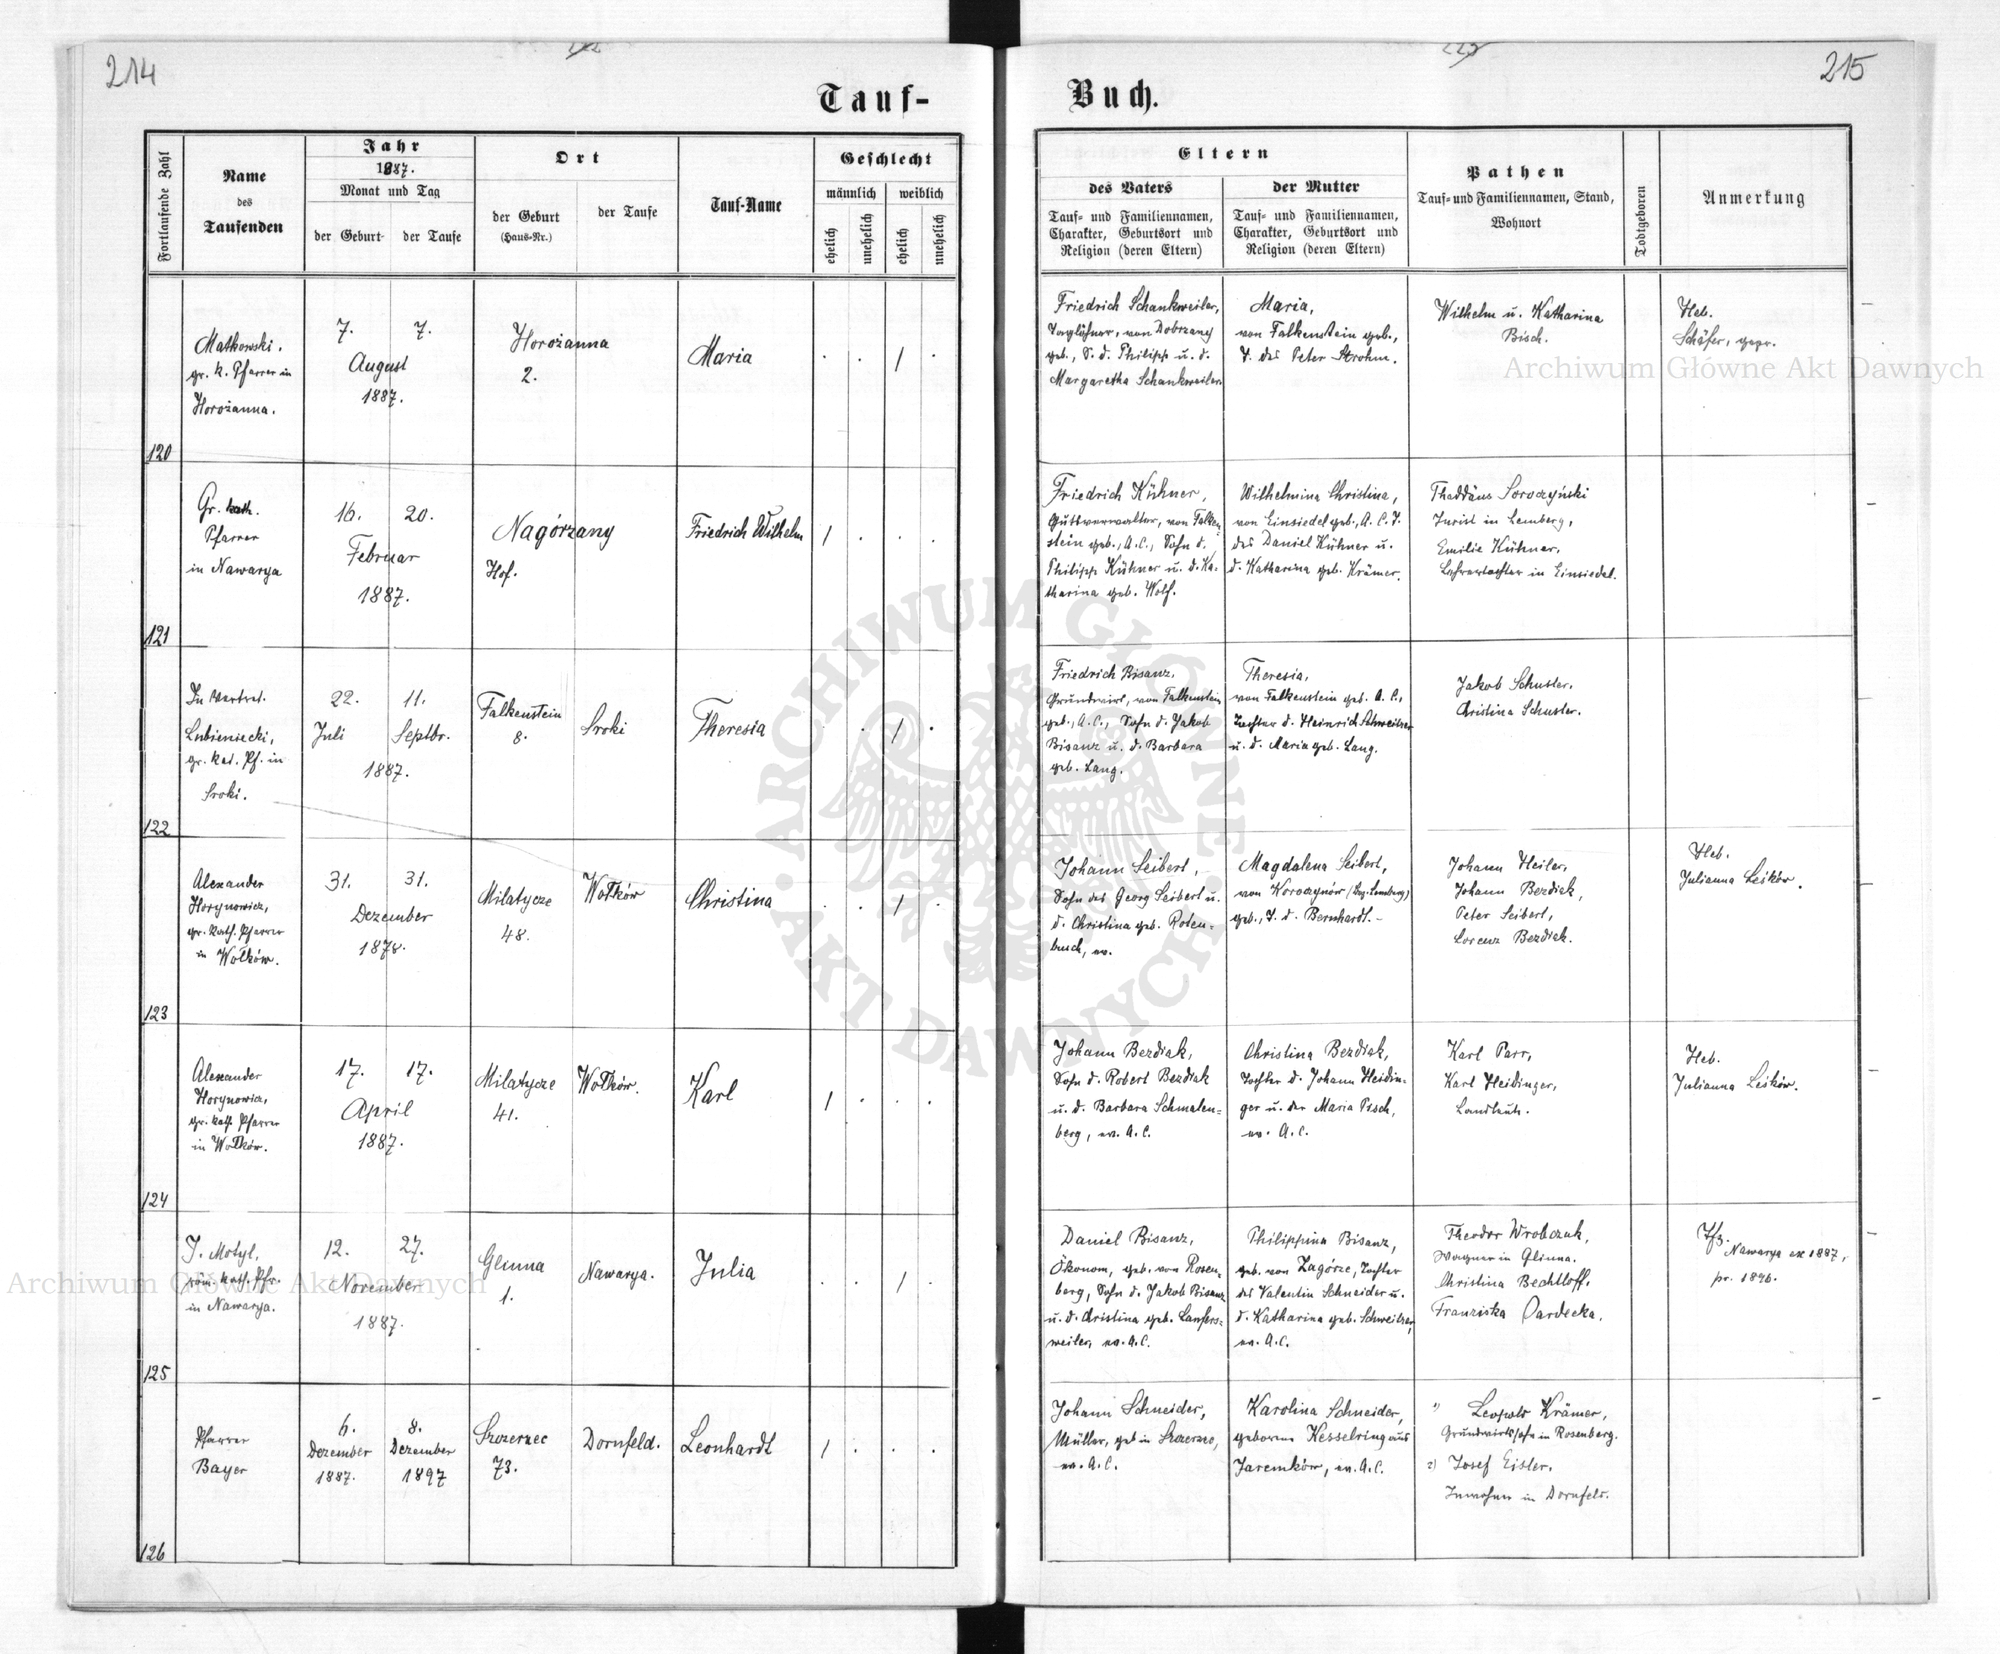 214
215
Tauf-
Buch.
Fortlaufende Zahl
Name
des
Taufenden
Jahr
1887.
Monat und Tag
der Geburt
der Taufe
Ort
der Geburt
(Haus-Nr.)
der Taufe
Tauf-Name
Geschlecht
männlich
weiblich
ehelich
unehelich
ehelich
unehelich
Eltern
des Vaters
Tauf- und Familiennamen,
Charakter, Geburtsort und
Religion (deren Eltern)
der Mutter
Tauf- und Familiennamen,
Charakter, Geburtsort und
Religion (deren Eltern)
Pathen
Tauf- und Familiennamen, Stand,
Wohnort
Todtgeboren
Anmerkung
120
Matkowski.
gr. k. Pfarrer in
Horożanna.
7. 7.
August
1887.
Horożanna
2.
Maria
Friedrich Schankweiler,
Taglöhner, von Dobrzany
geb., S. d. Philipp u. d.
Margaretha Schankweiler.
Maria,
von Falkenstein geb.,
T. des Peter Strohm.
Wilhelm u. Katharina
Bisch.
Heb.
Schäfer, gepr.
121
Gr. kath.
Pfarrer
in Nawarya
16. 20.
Februar
1887.
Nagórzany
Hof.
Friedrich Wilhelm
Friedrich Kühner,
Gutsverwalter, von Falken-
stein geb., A.C., Sohn d.
Philipp Kühner u. d. Ka-
tharina geb. Wolf.
Wilhelmina Christina,
von Einsiedel geb., A. C. T.
des Daniel Kühner u.
d. Katharina geb. Krämer.
Thaddäus Soroczyński
Jurist in Lemberg,
Emilie Kühner,
Lehrerstochter in Einsiedel.
122
In Vertret.
Lubieniecki,
gr. kat. Pf. in
Sroki.
22. 11.
Juli Septbr.
1887.
Falkenstein
8.
Sroki
Theresia
Friedrich Bisanz,
Grundwirt, von Falkenstein
geb., A.C., Sohn d. Jakob
Bisanz u. d. Barbara
geb. Lang.
Theresia,
von Falkenstein geb. A. C.,
Tochter d. Heinrich Schweitzer
u. d. Maria geb. Lang.
Jakob Schuster.
Christina Schuster.
123
Alexander
Horynowicz,
gr. kath. Pfarrer
in Wołków.
31. 31.
Dezember
1878.
Milatycze
48.
Wołków
Christina
Johann Seibert,
Sohn des Georg Seibert u.
d. Christina geb. Roten-
buch, ev.
Magdalena Seibert,
von Koroczynów (Bez. Lemberg)
geb., T. d. Bernhardt.-
Johann Heiler,
Johann Bezdiak,
Peter Seibert,
Lorenz Bezdiak.
Heb.
Julianna Leśków.
124
Alexander
Horynowicz,
gr. kath. Pfarrer
in Wołków.
17. 17.
April
1887.
Milatycze
41.
Wołków.
Karl
Johann Bezdiak,
Sohn d. Robert Bezdiak
u. d. Barbara Schmalen-
berg, ev. A.C.
Christina Bezdiak,
Tochter d. Johann Heidin-
ger u. der Maria Pisch,
ev. A.C.
Karl Parr,
Karl Heidinger,
Landleute.
Heb.
Julianna Leśków.
125
J. Motyl,
röm. kath. Pfr.
in Nawarya.
12. 27.
November
1887.
Glinna
1.
Nawarya.
Julia
Daniel Bisanz,
Ökonom, geb. von Rosen-
berg, Sohn d. Jakob Bisanz
u. d. Christina geb. Laufers-
weiler, ev. A.C.
Philippina Bisanz,
geb. von Zagórze, Tochter
des Valentin Schneider u.
d. Katharina geb. Schweitzer,
ev. A.C.
Theodor Wrobczuk,
Wagner in Glinna.
Christina Bechtloff.
Franziska Pardecka.
Nawarya ex 1887,
pr. 1896.
126
Pfarrer
Bayer
6. 8.
Dezember Dezember
1887. 1897
Szozerzec
73.
Dornfeld.
Leonhardt
Johann Schneider,
Müller, geb in Szozerzec,
ev. A.C.
Karolina Schneider,
geborene Kesselring aus
Jaremków, ev. A.C.
1) Leopold Krämer,
Grundwirtssohn in Rosenberg.
2) Josef Eisler.
Inwohner in Dornfeld.
Archiwum Główne Akt Dawnych
Archiwum Główne Akt Dawnych
ARCHIWUM GŁÓWNE
AKT DAWNYCH